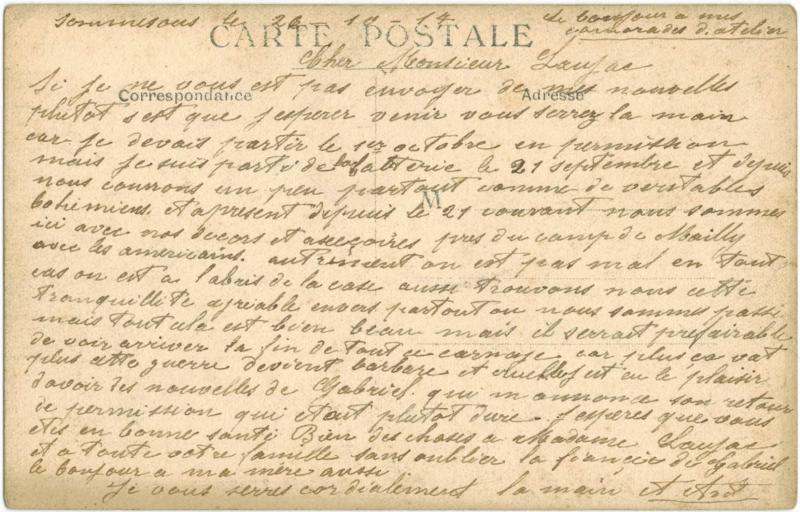 Sommesous le 26 - 10 - 17
Le bonjour a mes
camarades d'atelier
CARTE POSTALE
Cher Monsieur Laujac
Correspondance
Adresse
Si je ne vous est pas envoyer de mes nouvelles
plutot s'est que j'esperer venir vous serrez la main
car je devais partir le 1er octobre en permission
mais je suis parti de la batterie le 21 septembre et depuis
nous courrons un peu partout comme de veritables
M
bohemiens. et apresent depuis le 21 courant nous sommes
ici avec nos decors et assecoires pres du camp de Mailly
avec les americains. autrement on est pas mal en tout
cas on est a l'abris de la case aussi trouvons nous cette
tranquillite agriable envers partout ou nous sommes passé
mais tout cela est bien beau mais il serrait prefairable
de voir arriver la fin de tout ce carnage car plus ca vat
plus cette guerre devient barbare et cruelle j'est eu le plaisir
d'avoir des nouvelles de Gabriel qui m'annonce son retour
de permission qui etait plutot dure. J'esperes que vous
etes en bonne santé Bien des choses a Madame Laujac
et a toute votre famille sans oublier la fiancée de Gabriel
le bonjour a ma mère aussi
Je vous serres cordialement la main